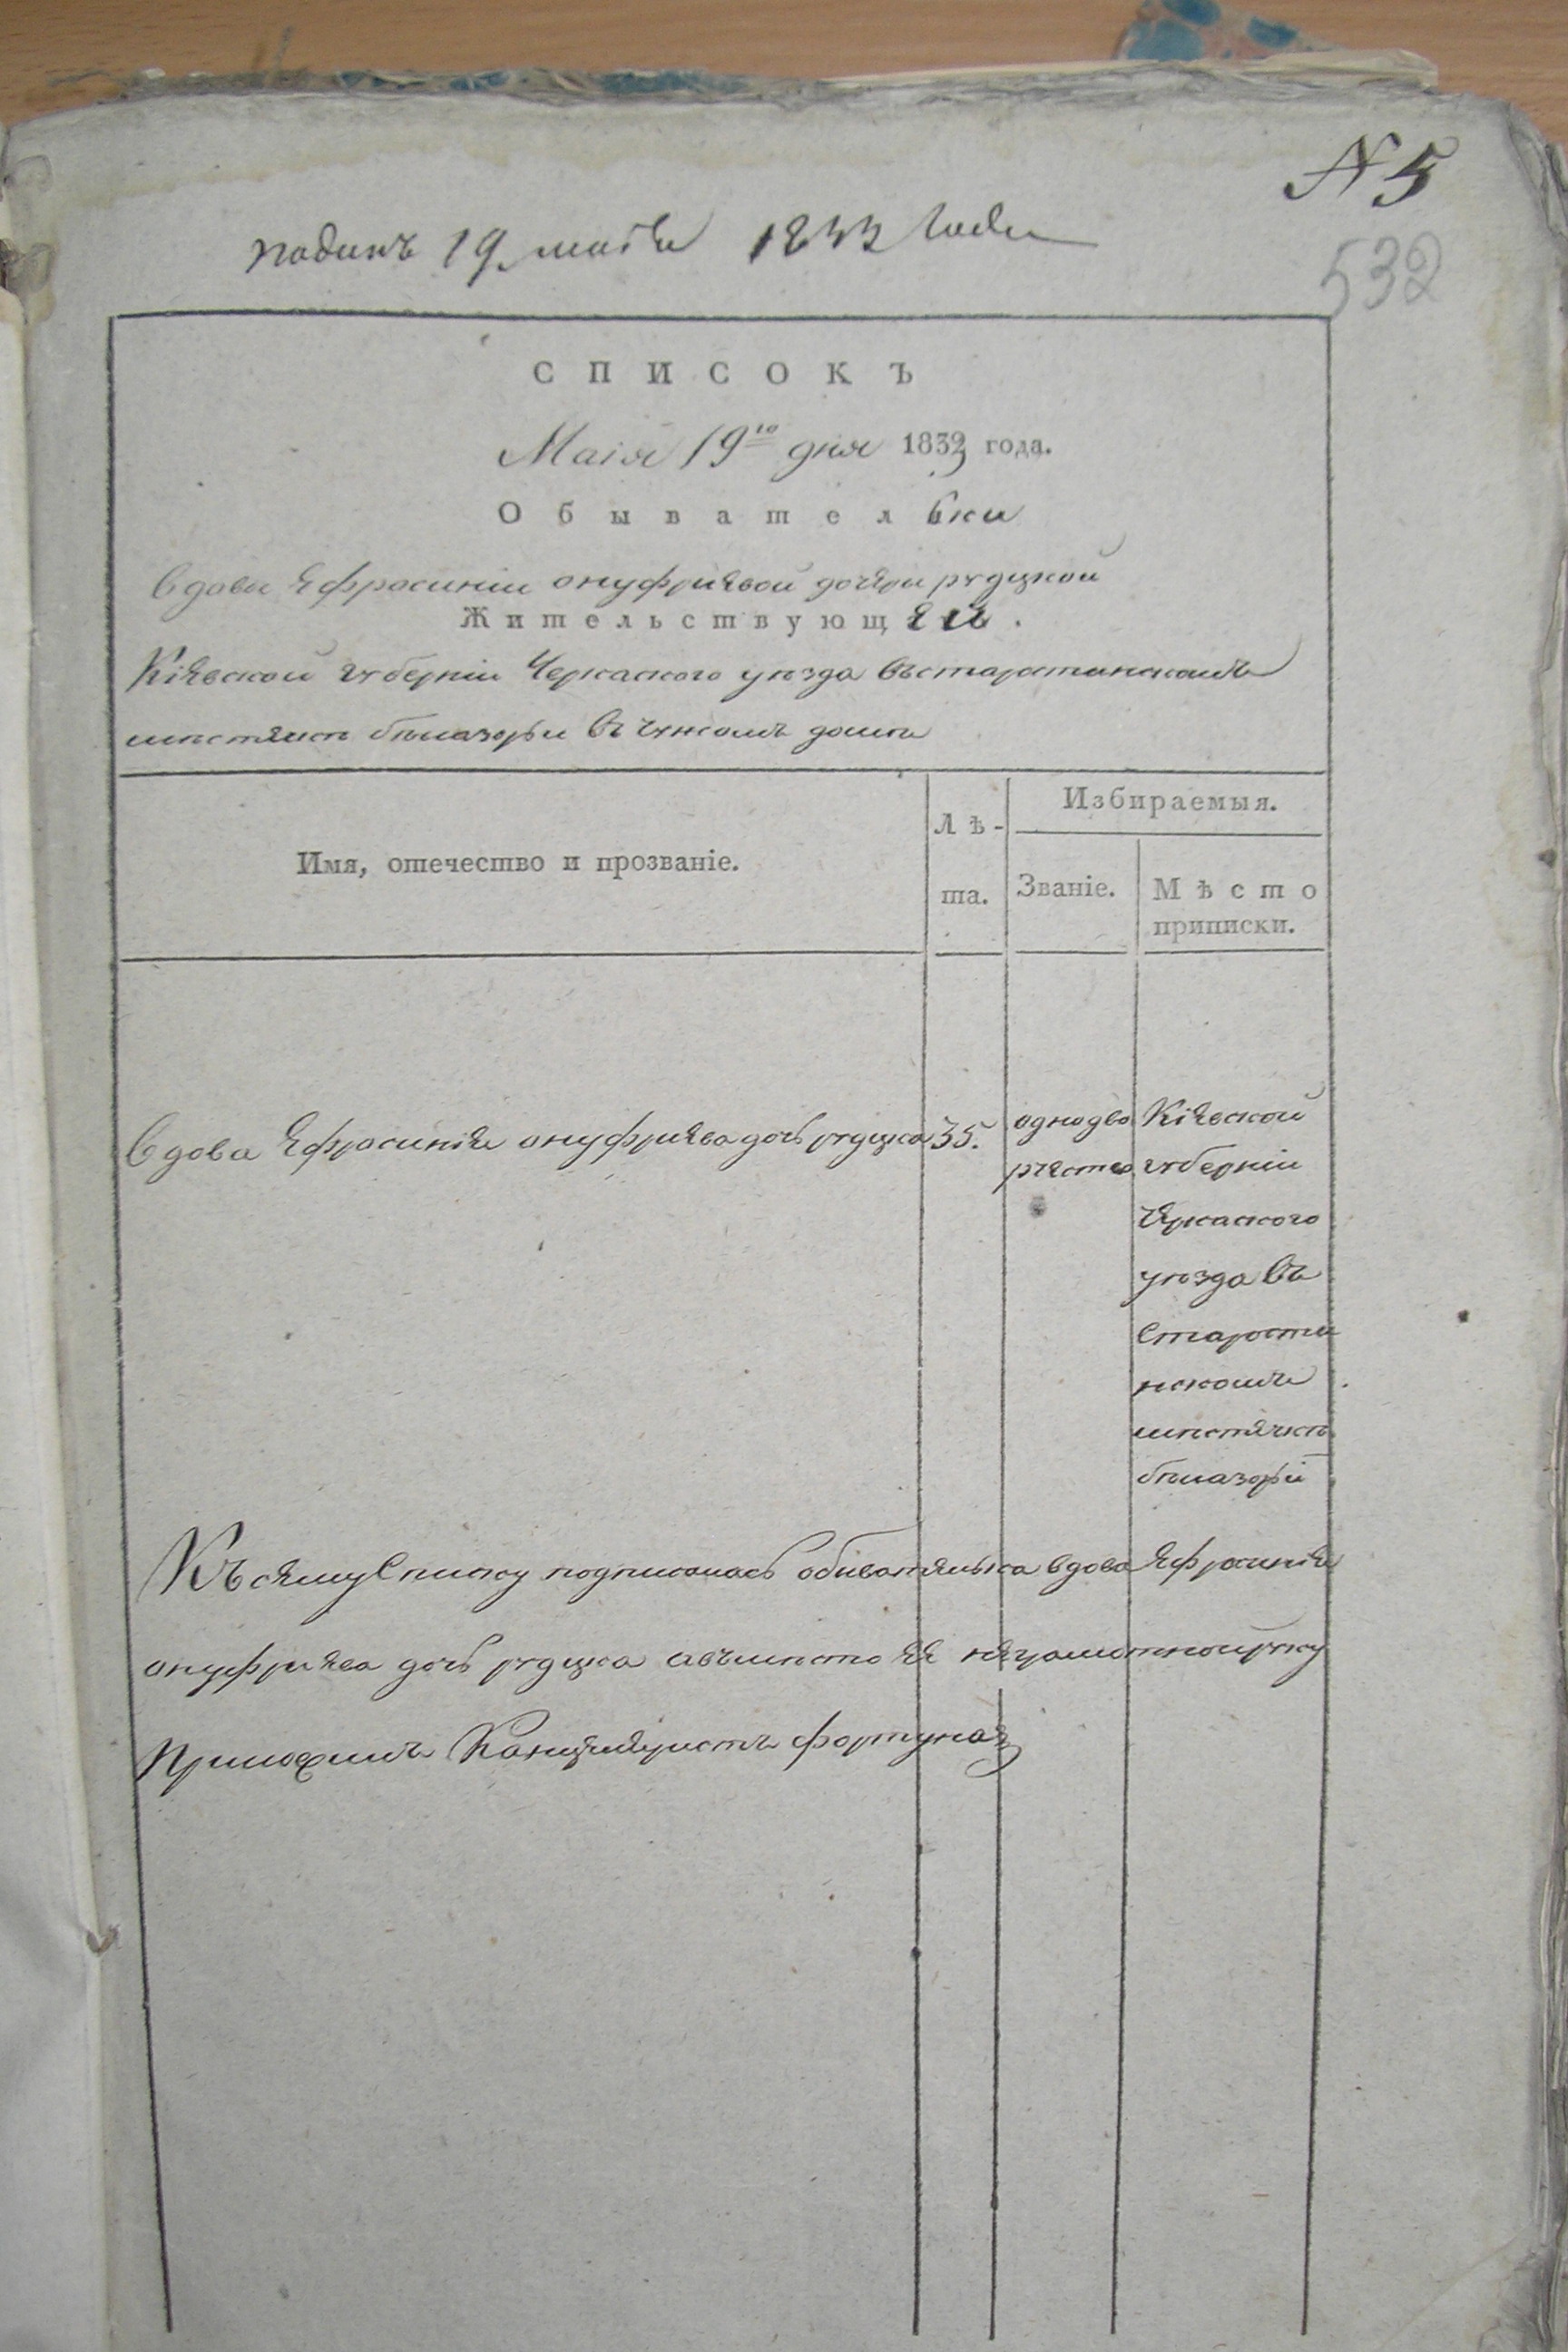 N 5
поданъ 19 маія 1833 года
532
СПИСОКЪ
Маія 19го дня 1833 года.
Обывательки
вдовы Ефросиніи онуфріевой дочери рудцкой
Жительствующей.
Кіевской губерніи Черкаского уезда въ старостинскомъ
местечке белазорьи въ чужомъ доме
Имя, отечество и прозваніе.
Лѣ-
та.
Избираемыя.
Званіе.
Мѣсто
приписки.
вдова Ефросинія онуфріева дочь рудцка
35.
однодво
рчество
Кіевской
губерніи
Черкаского
уезда въ
Старости
нскомъ
местечке
белазорьи
Къ сему Списку подписалась обывателька вдова Ефросинія
онуфріева дочь рудцка авместо ее неграмотной руку
приложилъ Канцеляристъ фортуна